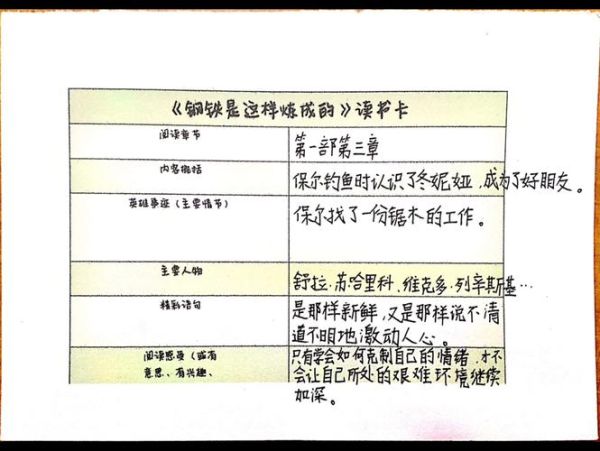 《钢铁是这样炼成的》读书卡
阅读章节
第一部第三章
内容概括
保尔钓鱼时认识了冬妮娅,成为了好朋友。
英雄事迹(主要情节)
保尔找了一份锯木的工作。
主要人物
舒拉·苏哈里科、维克多·列辛斯基…
精彩语句
是那样新鲜,又是那样说不清
道不明地激动人心。
阅读感受(或有
意思、有兴趣、
只有学会如何克制自己的情绪,才不
会让自己所处的艰难环境继续
加深。